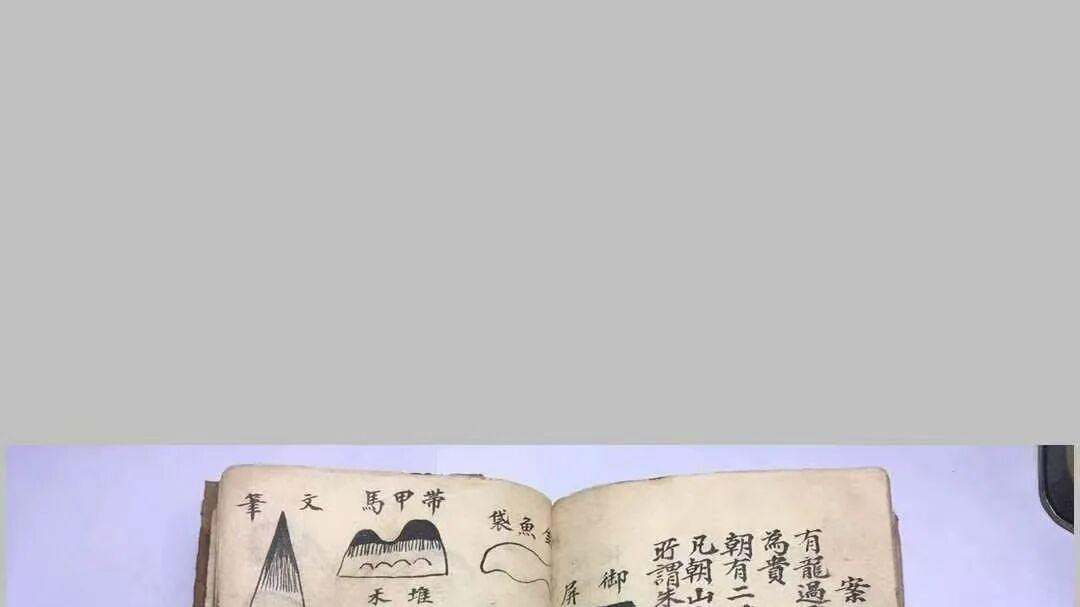 案
有龍過
為貴
朝有二
凡朝山
所謂朱
御屏
金魚袋
帶甲馬
堆禾
文筆